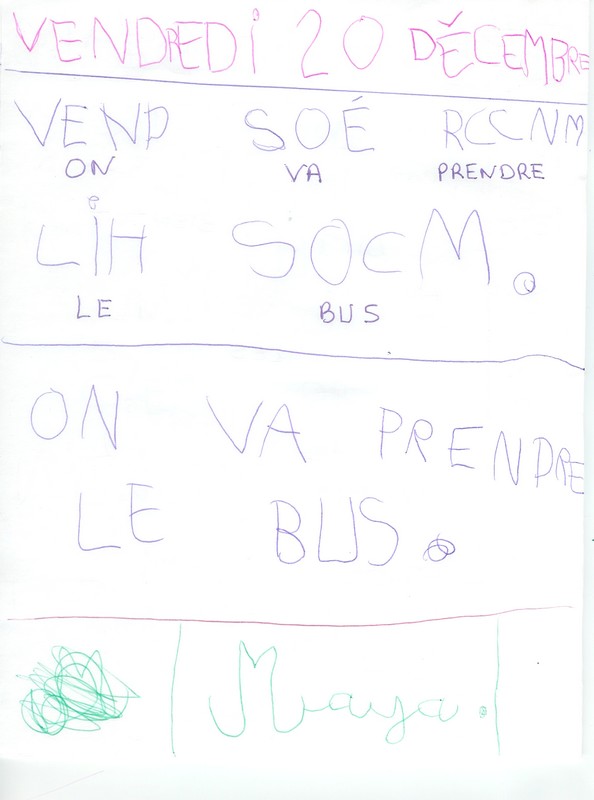 VENDREDI 20 DÉCEMBRE
VEND SOÉ RCCNM
ON VA PRENDRE
LIH SOCM.
LE BUS
ON VA PRENDRE
LE BUS.
Maya.